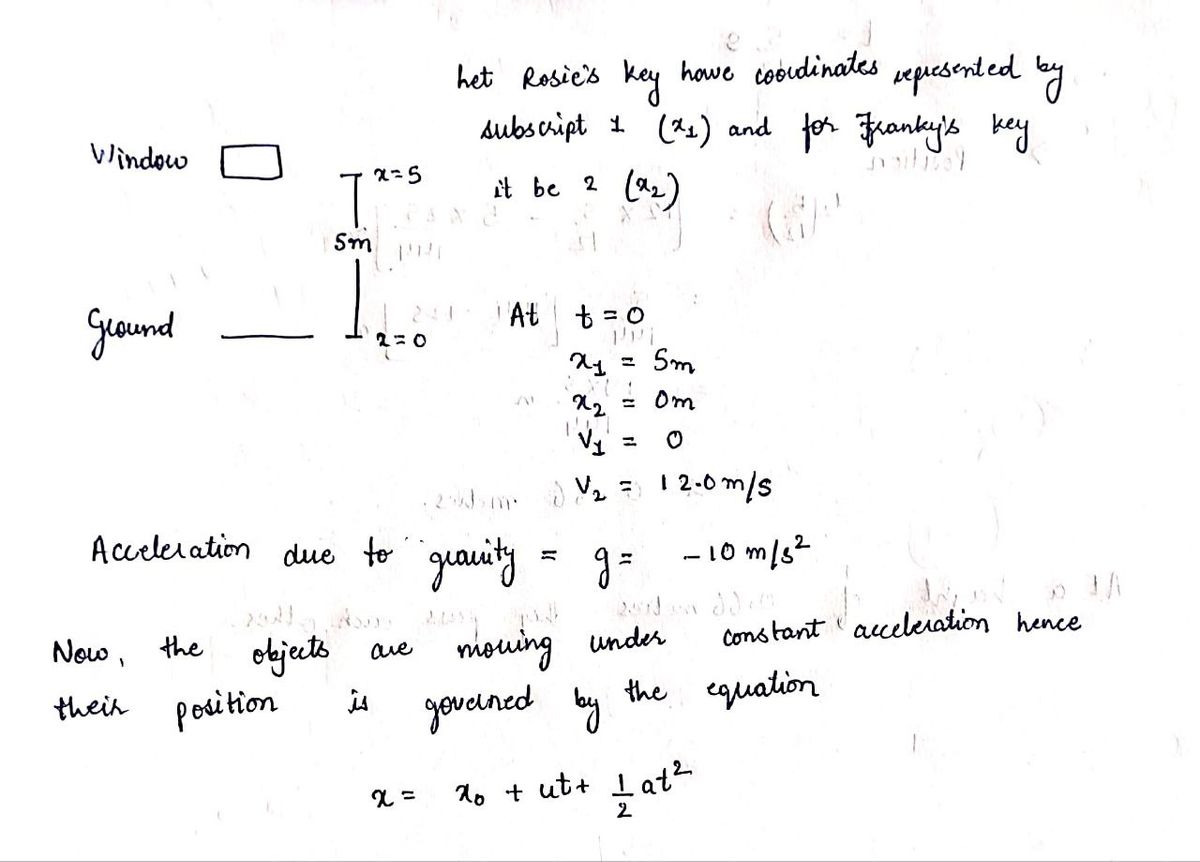 Let Rosie's key have coordinates represented by
subscript 1 (x₁) and for Franky's key
it be 2 (x₂)
Window
x=5
5m
Ground
x=0
At t = 0
x₁ = 5m
x₂ = 0m
V₁ = 0
V₂ = 12.0 m/s
Acceleration due to gravity = g = -10 m/s²
Now, the objects are moving under constant acceleration hence
their position is governed by the equation
x = x₀ + ut + 1/2 at²